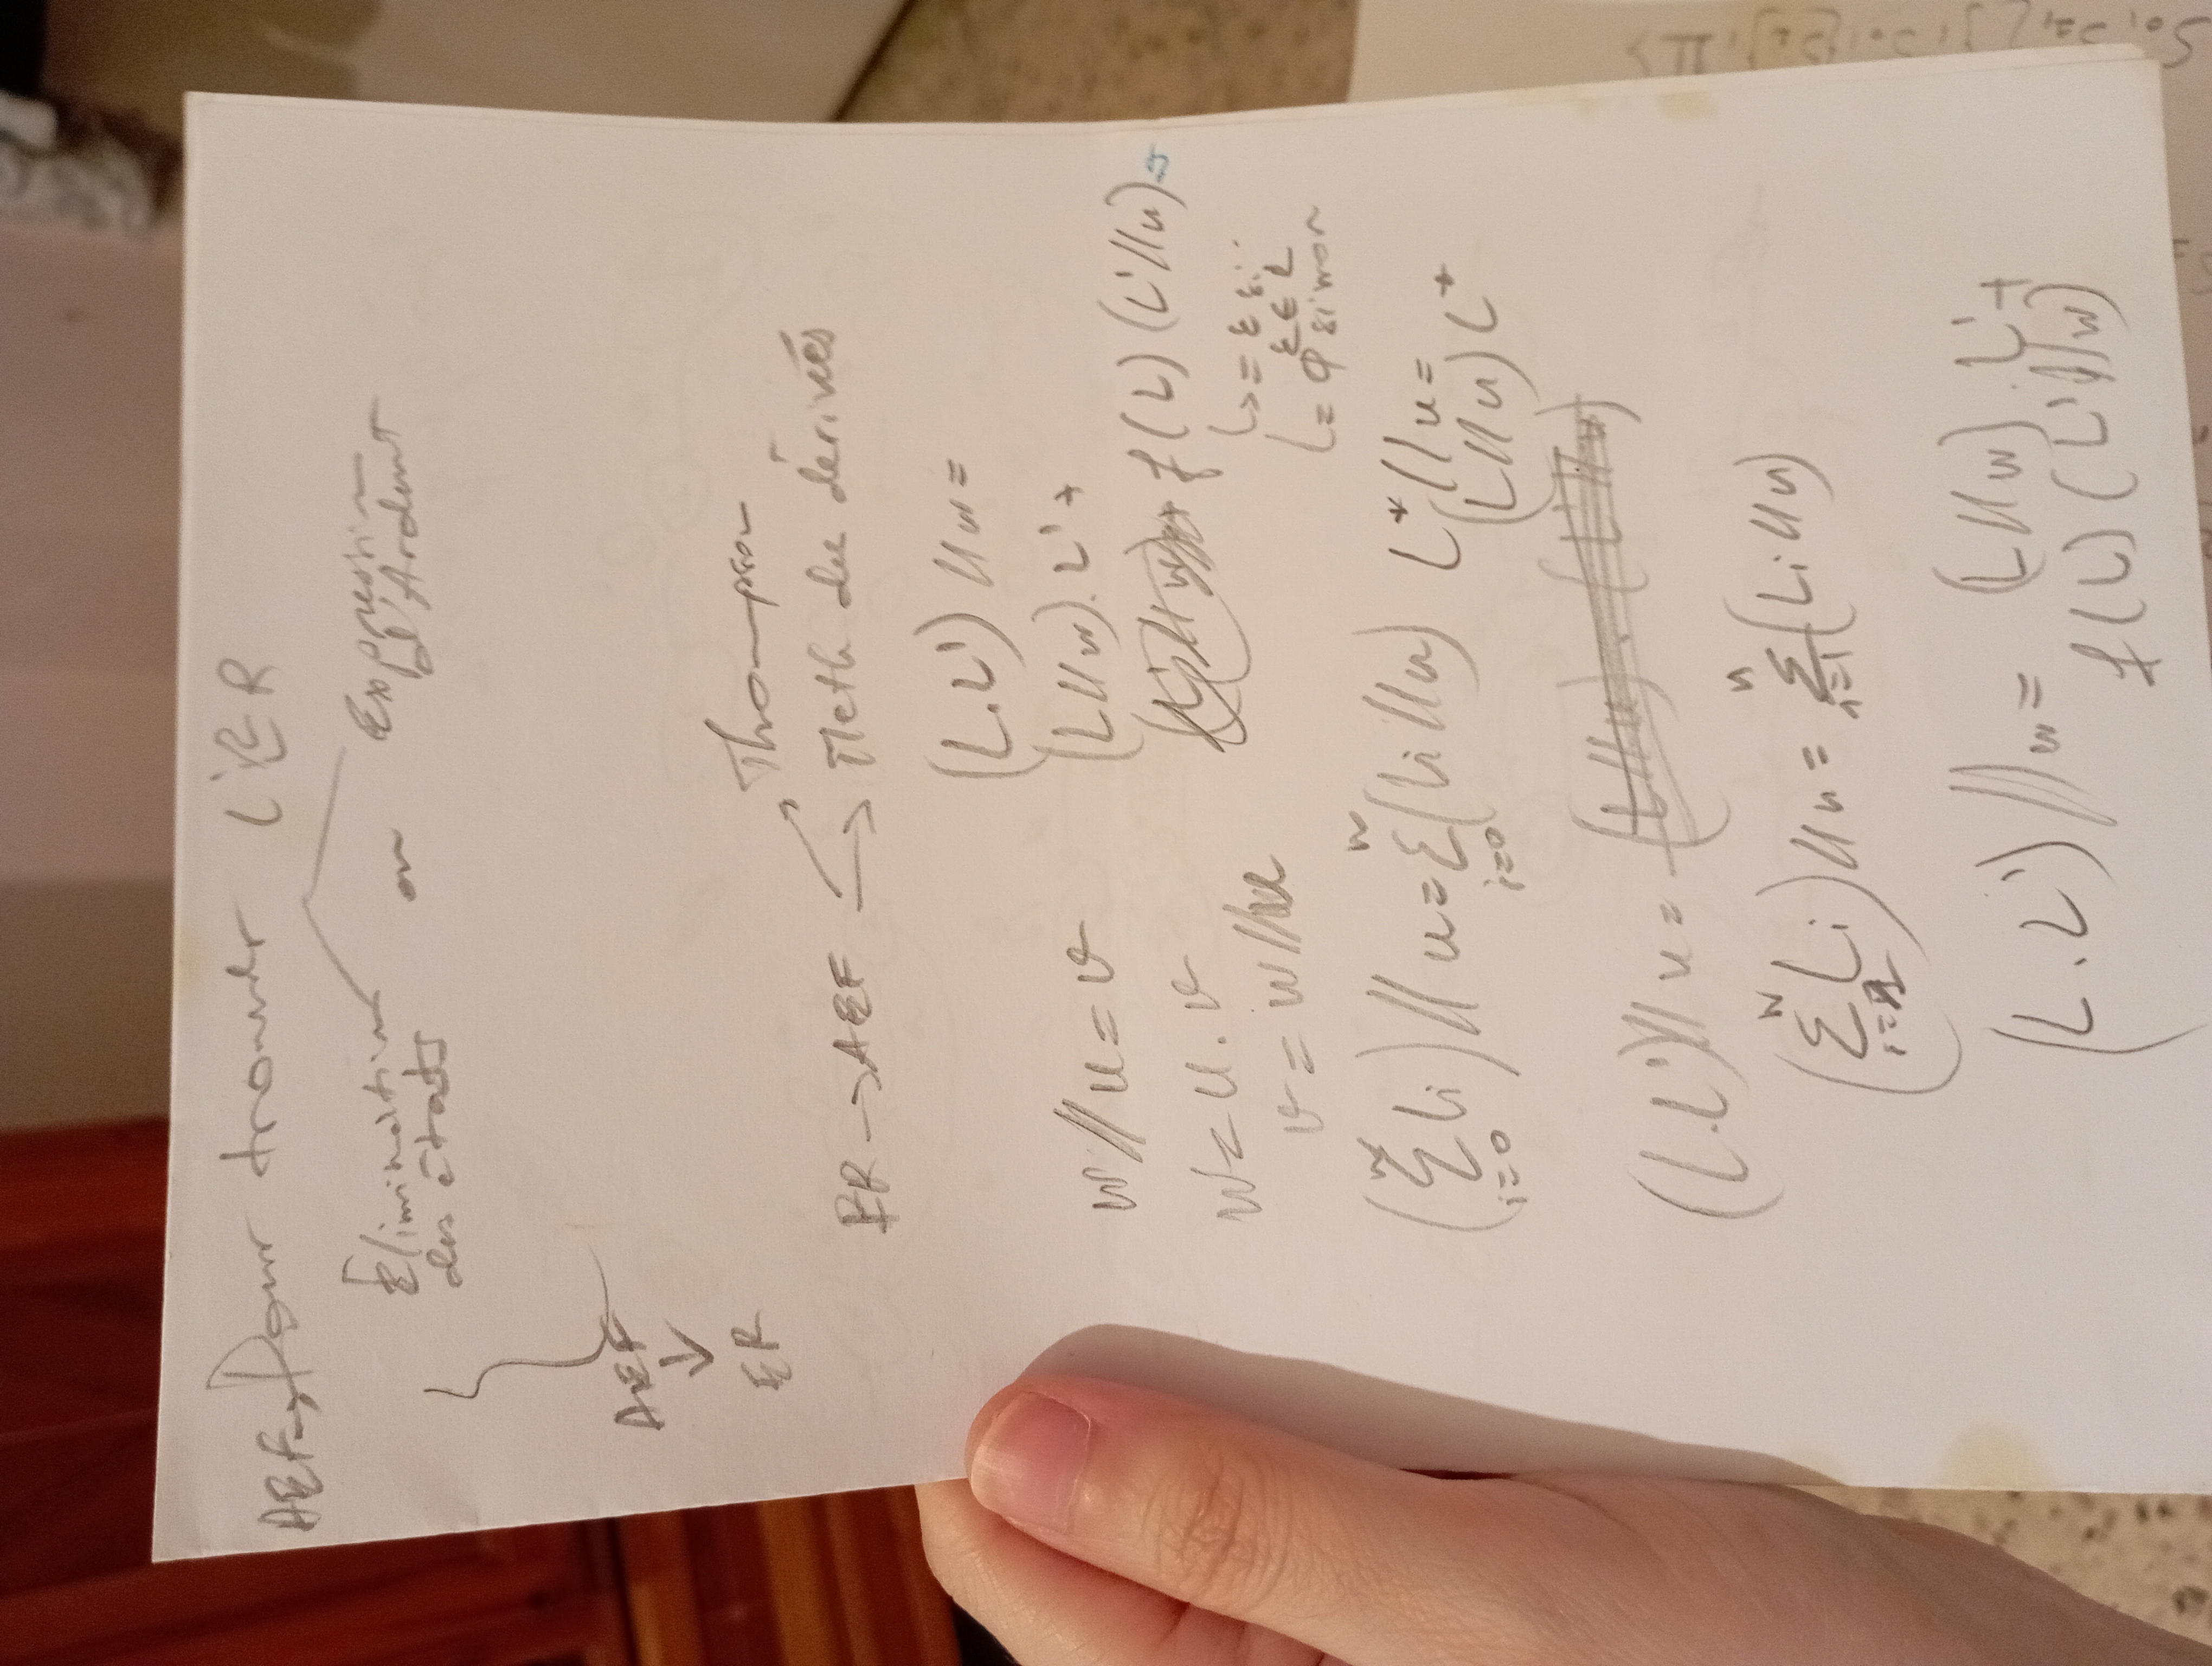 AEF→ Pour trouver l'ER
Élimination des états ou Expression d'Ardent
AEF
↓
ER
ER → AEF → Thompson
→ Meth des dérivés
(L.L') // w =
(L // w). L' +
f(L) (L' // u)
↳ = ε si
ε ∈ L
= Φ sinon
w // u = v
w = u . v
v = w // u
(∑ i=0 n Li) // u = ∑ i=0 n (Li // u)
L* // u =
(L // u) L*
(L.L') // u = (L // u) . (L' // u)
(∑ i=1 n Li) // u = ∑ i=1 n (Li // u)
(L.L') // w = (L // w) . L' +
f(L) (L' // w)